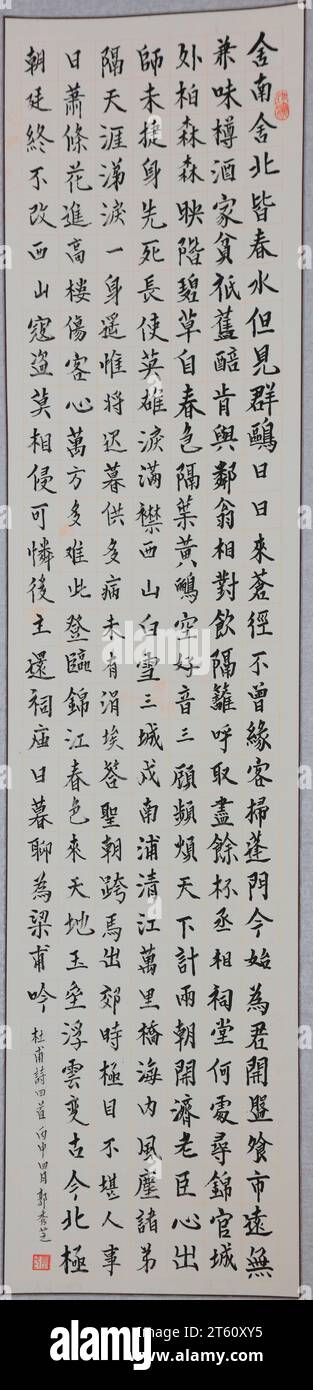 舍南舍北皆春水但見群鷗日日來蒼徑不曾緣客掃蓬門今始為君開盤飱市遠無
兼味樽酒家貧祇舊醅肯與鄰翁相對飲隔籬呼取盡餘杯丞相祠堂何處尋錦官城
外柏森森映階碧草自春色隔葉黃鸝空好音三顧頻煩天下計兩朝開濟老臣心出
師未捷身先死長使英雄淚滿襟西山白雪三城戍南浦清江萬里橋海內風塵諸弟
隔天涯涕淚一身遙惟將迟暮供多病未有涓埃答聖朝跨馬出郊時極目不堪人事
日蕭條花進高樓傷客心萬方多難此登臨錦江春色來天地玉壘浮雲變古今北極
朝廷終不改西山寇盜莫相侵可憐後主還祠庙日暮聊為梁甫吟
杜甫詩四首 丙申四月 郭秀芝
alamy
Image ID: 2T60XY5
www.alamy.com